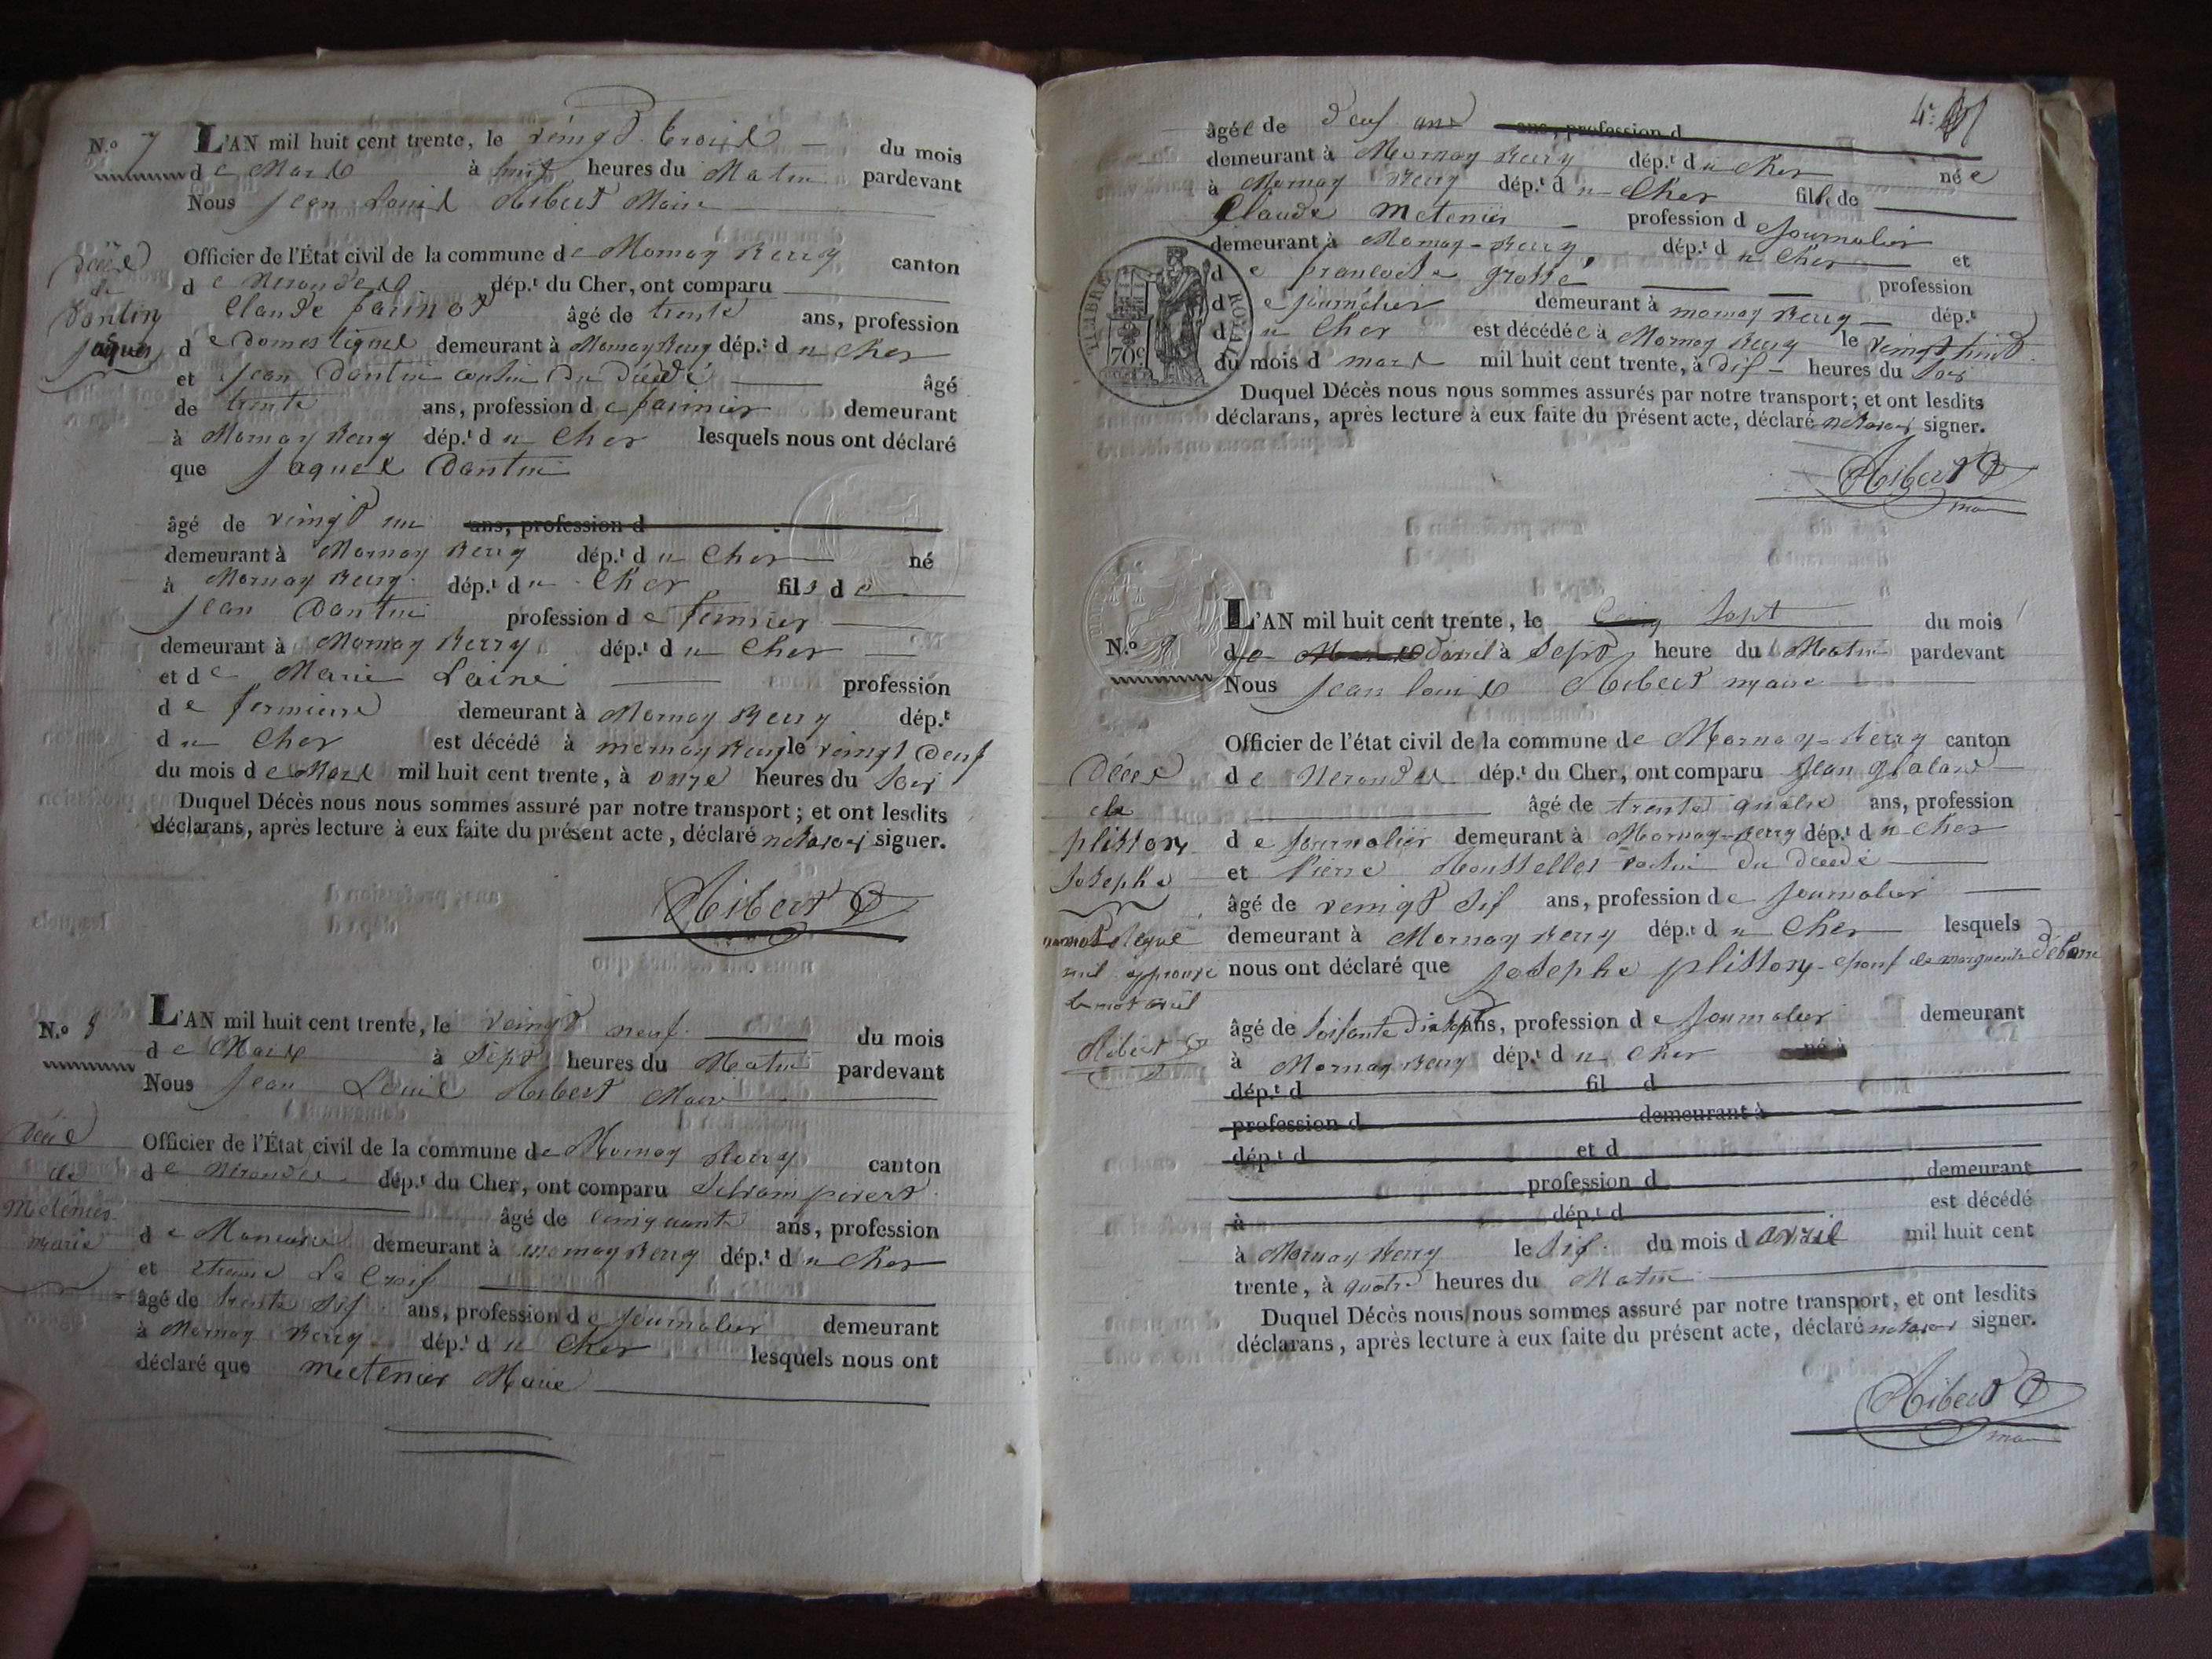 N.º 7
L'AN mil huit cent trente, le vingt trois du mois
de Mars à huit heures du Matin pardevant
Nous Jean Louis Hibert Maire
décè
de
Dantin
Jaques
Officier de l'État civil de la commune de Mornay Berry canton
de Nerondes dép.t du Cher, ont comparu
Claude farinot âgé de trente ans, profession
de Domestique demeurant à Mornay Berry dép.t du Cher
et Jean Dantin cousin du décédé âgé
de trente ans, profession de farinier demeurant
à Mornay Berry dép.t du Cher lesquels nous ont déclaré
que Jaques Dantin
âgé de vingt un ans, profession d
demeurant à Mornay Berry dép.t du Cher né
à Mornay Berry dép.t du Cher fils de
Jean Dantin profession de fermier
demeurant à Mornay Berry dép.t du Cher
et de Marie Lainé profession
de fermiere demeurant à Mornay Berry dép.t
du Cher est décédé à mornay Berry le vingt deux
du mois de Mars mil huit cent trente, à onze heures du soir
Duquel Décès nous nous sommes assuré par notre transport ; et ont lesdits
déclarans, après lecture à eux faite du présent acte, déclaré ne savoir signer.
Hibert
N.º 8
L'AN mil huit cent trente, le vingt neuf du mois
de Mars à sept heures du Matin pardevant
Nous Jean Louis Hibert Maire
décè
de
Metenier
marie
Officier de l'État civil de la commune de Mornay Berry canton
de Nerondes dép.t du Cher, ont comparu
âgé de cinquante ans, profession
de demeurant à mornay Berry dép.t du Cher
et La Croix
âgé de trente six ans, profession de Journalier demeurant
à Mornay Berry dép.t du Cher lesquels nous ont
déclaré que metenier Marie
4.e
âgée de deux ans ans, profession d
demeurant à Mornay Berry dép.t du Cher née
à Mornay Berry dép.t du Cher fille de
Claude Metenier profession d Journalier
demeurant à Mornay-Berry, dép.t du Cher et
de francoise grosse profession
de journalier demeurant à mornay Berry dép.t
du Cher est décédée à Mornay Berry le vingt huit
du mois d mars mil huit cent trente, à dix heures du soir
TIMBRE ROYAL
70c
Duquel Décès nous nous sommes assurés par notre transport ; et ont lesdits
déclarans, après lecture à eux faite du présent acte, déclaré ne savoir signer.
Hibert
maire
N.º 9
L'AN mil huit cent trente, le cinq sept du mois
de Mars d'avril à sept heure du Matin pardevant
Nous Jean louis Hibert maire
décès
de
plisson
Josephe
Officier de l'état civil de la commune de Mornay-Berry canton
de Nerondes dép.t du Cher, ont comparu Jean
âgé de trente quatre ans, profession
de Journalier demeurant à Mornay-Berry dép.t du Cher
et Pierre voisin du décédé
âgé de vingt six ans, profession de Journalier
demeurant à Mornay Berry dép.t du Cher lesquels
nous ont déclaré que Josephe plisson epoux de marguerite
nul approuvé
le mot avril
Hibert
âgé de soixante dix sept ans, profession de Journalier demeurant
à Mornay Berry dép.t du Cher né à
dép.t d fil d
profession d demeurant à
dép.t d et d
profession d demeurant
à dép.t d est décédé
à Mornay Berry le six du mois d avril mil huit cent
trente, à quatre heures du Matin
Duquel Décès nous nous sommes assuré par notre transport, et ont lesdits
déclarans, après lecture à eux faite du présent acte, déclaré ne savoir signer.
Hibert
maire